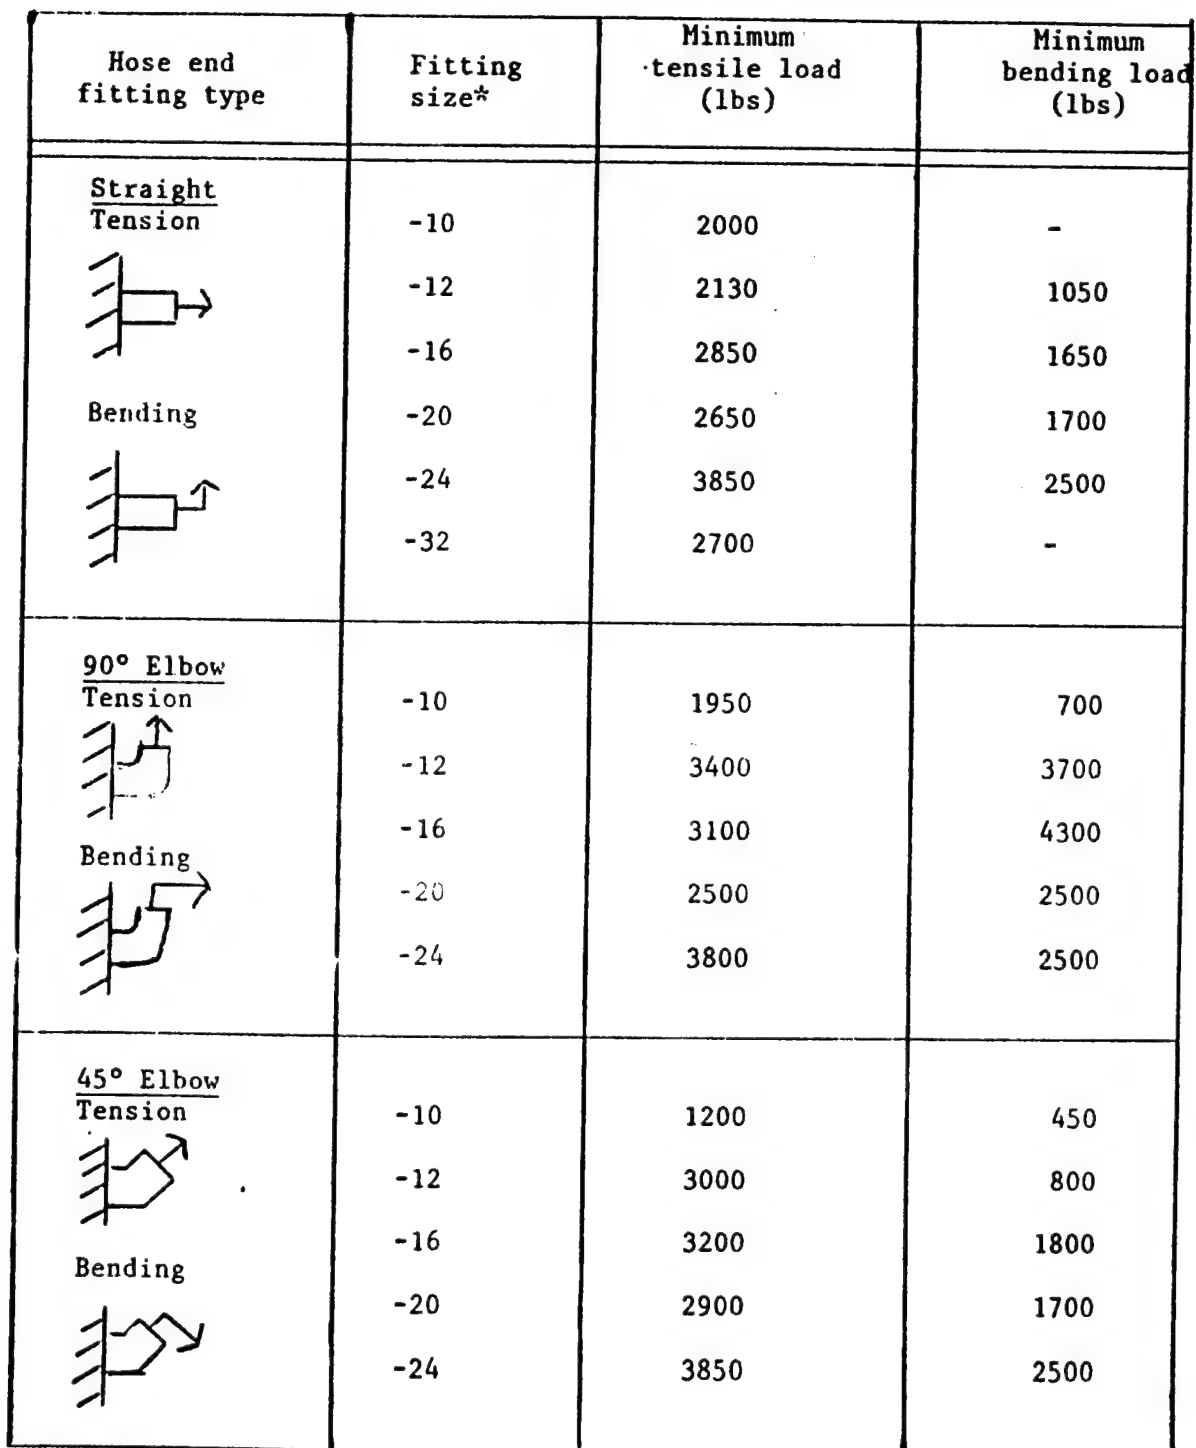 Hose end fitting type | Fitting size* | Minimum tensile load (lbs) | Minimum bending load (lbs)
Straight
Tension
-10 2000 -
-12 2130 1050
-16 2850 1650
Bending
-20 2650 1700
-24 3850 2500
-32 2700 -
90° Elbow
Tension
-10 1950 700
-12 3400 3700
-16 3100 4300
Bending
-20 2500 2500
-24 3800 2500
45° Elbow
Tension
-10 1200 450
-12 3000 800
-16 3200 1800
Bending
-20 2900 1700
-24 3850 2500